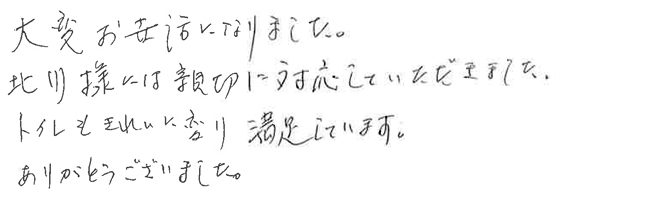 大変お世話になりました。
北川様には親切に対応していただきました.
トイレもきれいに変り満足しています。
ありがとうございました。